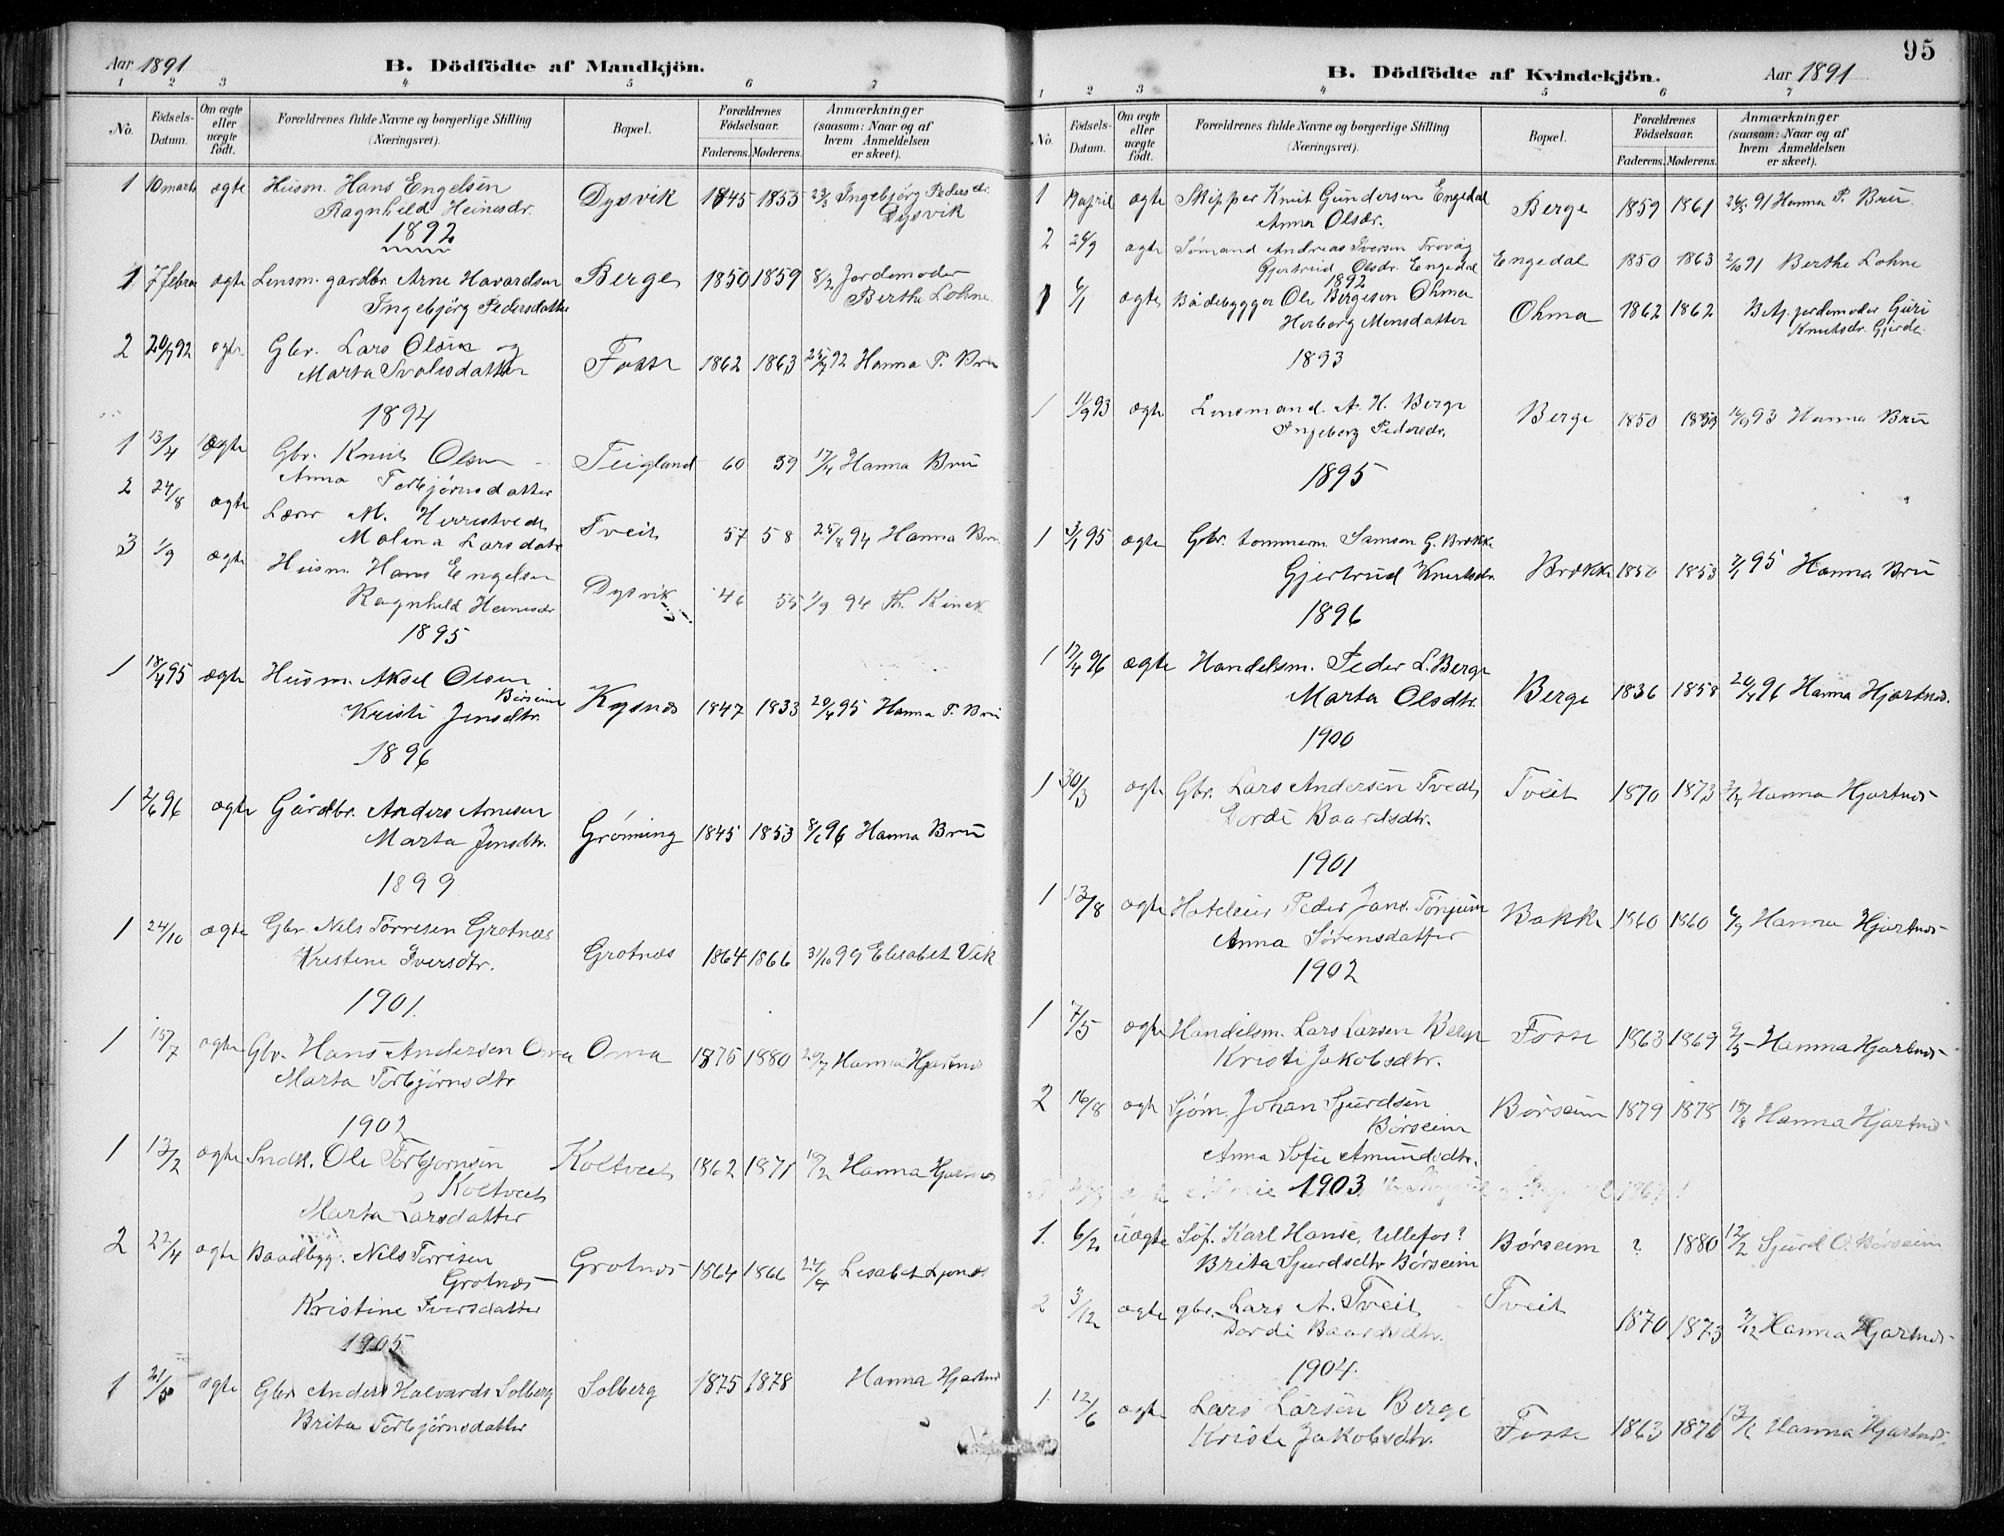 Aar 1891
B. Dödfödte af Mandkjön.
1 2 3 4 5 6 7
No.
Födsels-Datum.
Om ægte eller uægte födt.
Forældrenes fulde Navne og borgerlige Stilling (Næringsvei).
Bopæl.
Forældrenes Födselsaar.
Faderens. Moderens.
Anmærkninger (saasom: Naar og af hvem Anmeldelsen er skeet).
1 10 marts ægte Husm. Hans Engelsen Dysvik 1845 1855 Ingebjørg Pedersdr.
Ragnhild Heinesdr. Dysvik
1892
1 7 febru ægte Lensm. gardbr. Arne Havardsen Berge 1850 1859 8/2 Jordemoder
Ingebjørg Pedersdatter Berthe Lohne
2 20/7 92 ægte Gbr. Lars Olsen og Fosse 1862 1863 25/7 92 Hanna P. Bru
Marta Svolisdatter
1894
1 13/4 ægte Gbr. Knut Olsen Teigland 60 59 17/4 Hanna Bru
Anna Torbjørnsdatter
2 24/8 ægte Lærer M. Herrestveds Tveit 57 58 25/8 94 Hanna Bru
Malina Larsdatr
3 1/9 ægte Husm. Hans Engelsen Dysvik 46 55 1/9 94 Th. Kinck
Ragnhild Heinesdr
1895
1 18/4 95 ægte Husm. Aksel Olsen Kysnes 1847 1833 20/4 95 Hanna P. Bru
Børseim
Kristi Jensdtr.
1896
1 2/6 96 ægte Gårdbr. Anders Arnesen Grønning 1845 1853 8/6 96 Hanna Bru
Marta Jensdtr.
1899
1 24/10 ægte Gbr. Nils Torresen Grotnæs Grotnæs 1864 1866 31/10 99 Elisabet Vik
Kristine Iversdtr.
1901.
1 15/7 ægte Gbr. Hans Andersen Oma Oma 1875 1880 20/7 Hanna Hjartnes
Marta Torbjørnsdtr
1902
1 13/2 ægte Snedk. Ole Torbjørnsen Koltveit 1862 1871 19/2 Hanna Hjartnes
Koltveit
Marta Larsdatter
2 22/4 ægte Baadbygg. Nils Torrisen Grotnæs 1864 1866 24/4 Lisabet Ljones
Grotnæs
Kristine Iversdatter
1905
1 31/5 ægte Gbr. Anders Halvards. Solberg Solberg 1875 1878 Hanna Hjartnes
Brita Torbjørnsdatter
95
B. Dödfödte af Kvindekjön.
Aar 1891
1 2 3 4 5 6 7
No.
Födsels-Datum.
Om ægte eller uægte födt.
Forældrenes fulde Navne og borgerlige Stilling (Næringsvei).
Bopæl.
Forældrenes Födselsaar.
Faderens. Moderens.
Anmærkninger (saasom: Naar og af hvem Anmeldelsen er skeet).
1 april ægte Skipper Knut Gundersen Engedal Berge 1859 1861 26/5 91 Hanna P. Bru.
Anna Olsdr.
2 26/9 ægte Sømand Andreas Iversen Trovåg Engedal 1850 1863 2/10 91 Berthe Lohne
Gjertrud Olsdr. Engedal
1892
1 6/1 ægte Bådebygger Ole Bergesen Ohma Ohma 1862 1862 Bej. jordemoder Guri
Herborg Monsdatter Knutsdr. Gjerde
1893
1 11/9 93 ægte Lensmand. A. H. Berge Berge 1850 1859 16/9 93 Hanna Bru
Ingeborg Pedersdr.
1895
1 3/1 95 ægte Gbr. tømmerm. Samson G. Brekke Brekke 1850 1853 7/1 95 Hanna Bru
Gjertrud Knutsdr
1896
1 17/4 96 ægte Handelsm. Peder L. Berge Berge 1836 1858 20/4 96 Hanna Hjartnes.
Marta Olsdtr.
1900
1 30/3 ægte Gbr. Lars Andersen Tvedt Tveit 1870 1873 2/4 Hanna Hjartnes
Dordi Baardsdtr.
1901
1 13/8 ægte Hoteleier Peder Jans. Tønjum Bakke 1860 1860 6/9 Hanna Hjartnes
Anna Sørensdatter
1902
1 7/5 ægte Handelsm. Lars Larsen Berge Fosse 1863 1869 9/5 Hanna Hjartnes
Kristi Jakobsdtr.
2 16/8 ægte Sjøm. Johan Sjurdsen Børseim 1879 1878 18/8 Hanna Hjartnes
Børseim
Anna Sofie Amundsdtr.
1903
1. 6/2. uægte Søf. Karl Hanse, Ullefos? Børseim ? 1880 12/2 Sjurd O. Børseim
Brita Sjurdsdtr. Børseim
2 3/12 ægte gbr. Lars A. Tveit Tveit 1870 1873 7/12 Hanna Hjartnes
Dordi Baardsdtr.
1904.
1. 12/6 ægte Lars Larsen Berge Fosse 1863 1870 13/6 Hanna Hjartnes
Kristi Jakobsdtr.